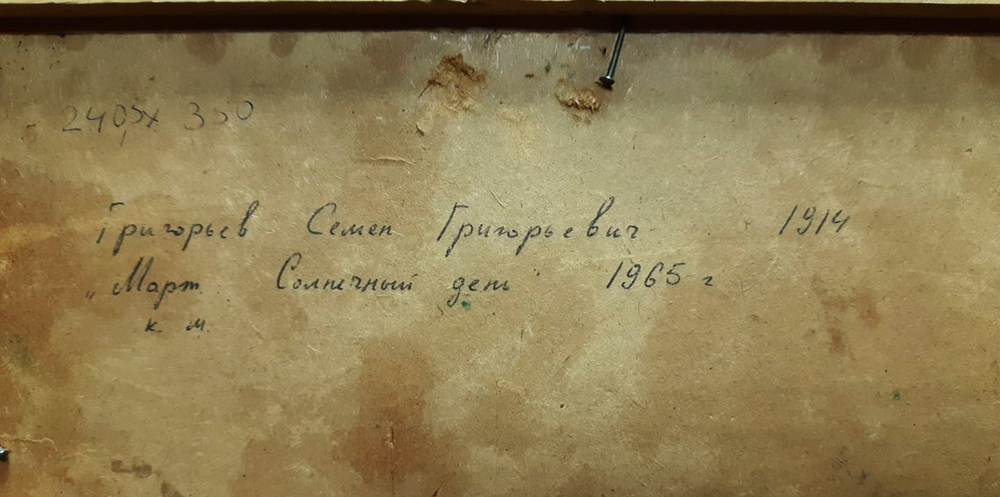 2405х 350
Григорьев Семен Григорьевич 1914
„Март Солнечный день" 1965 г
к. м.